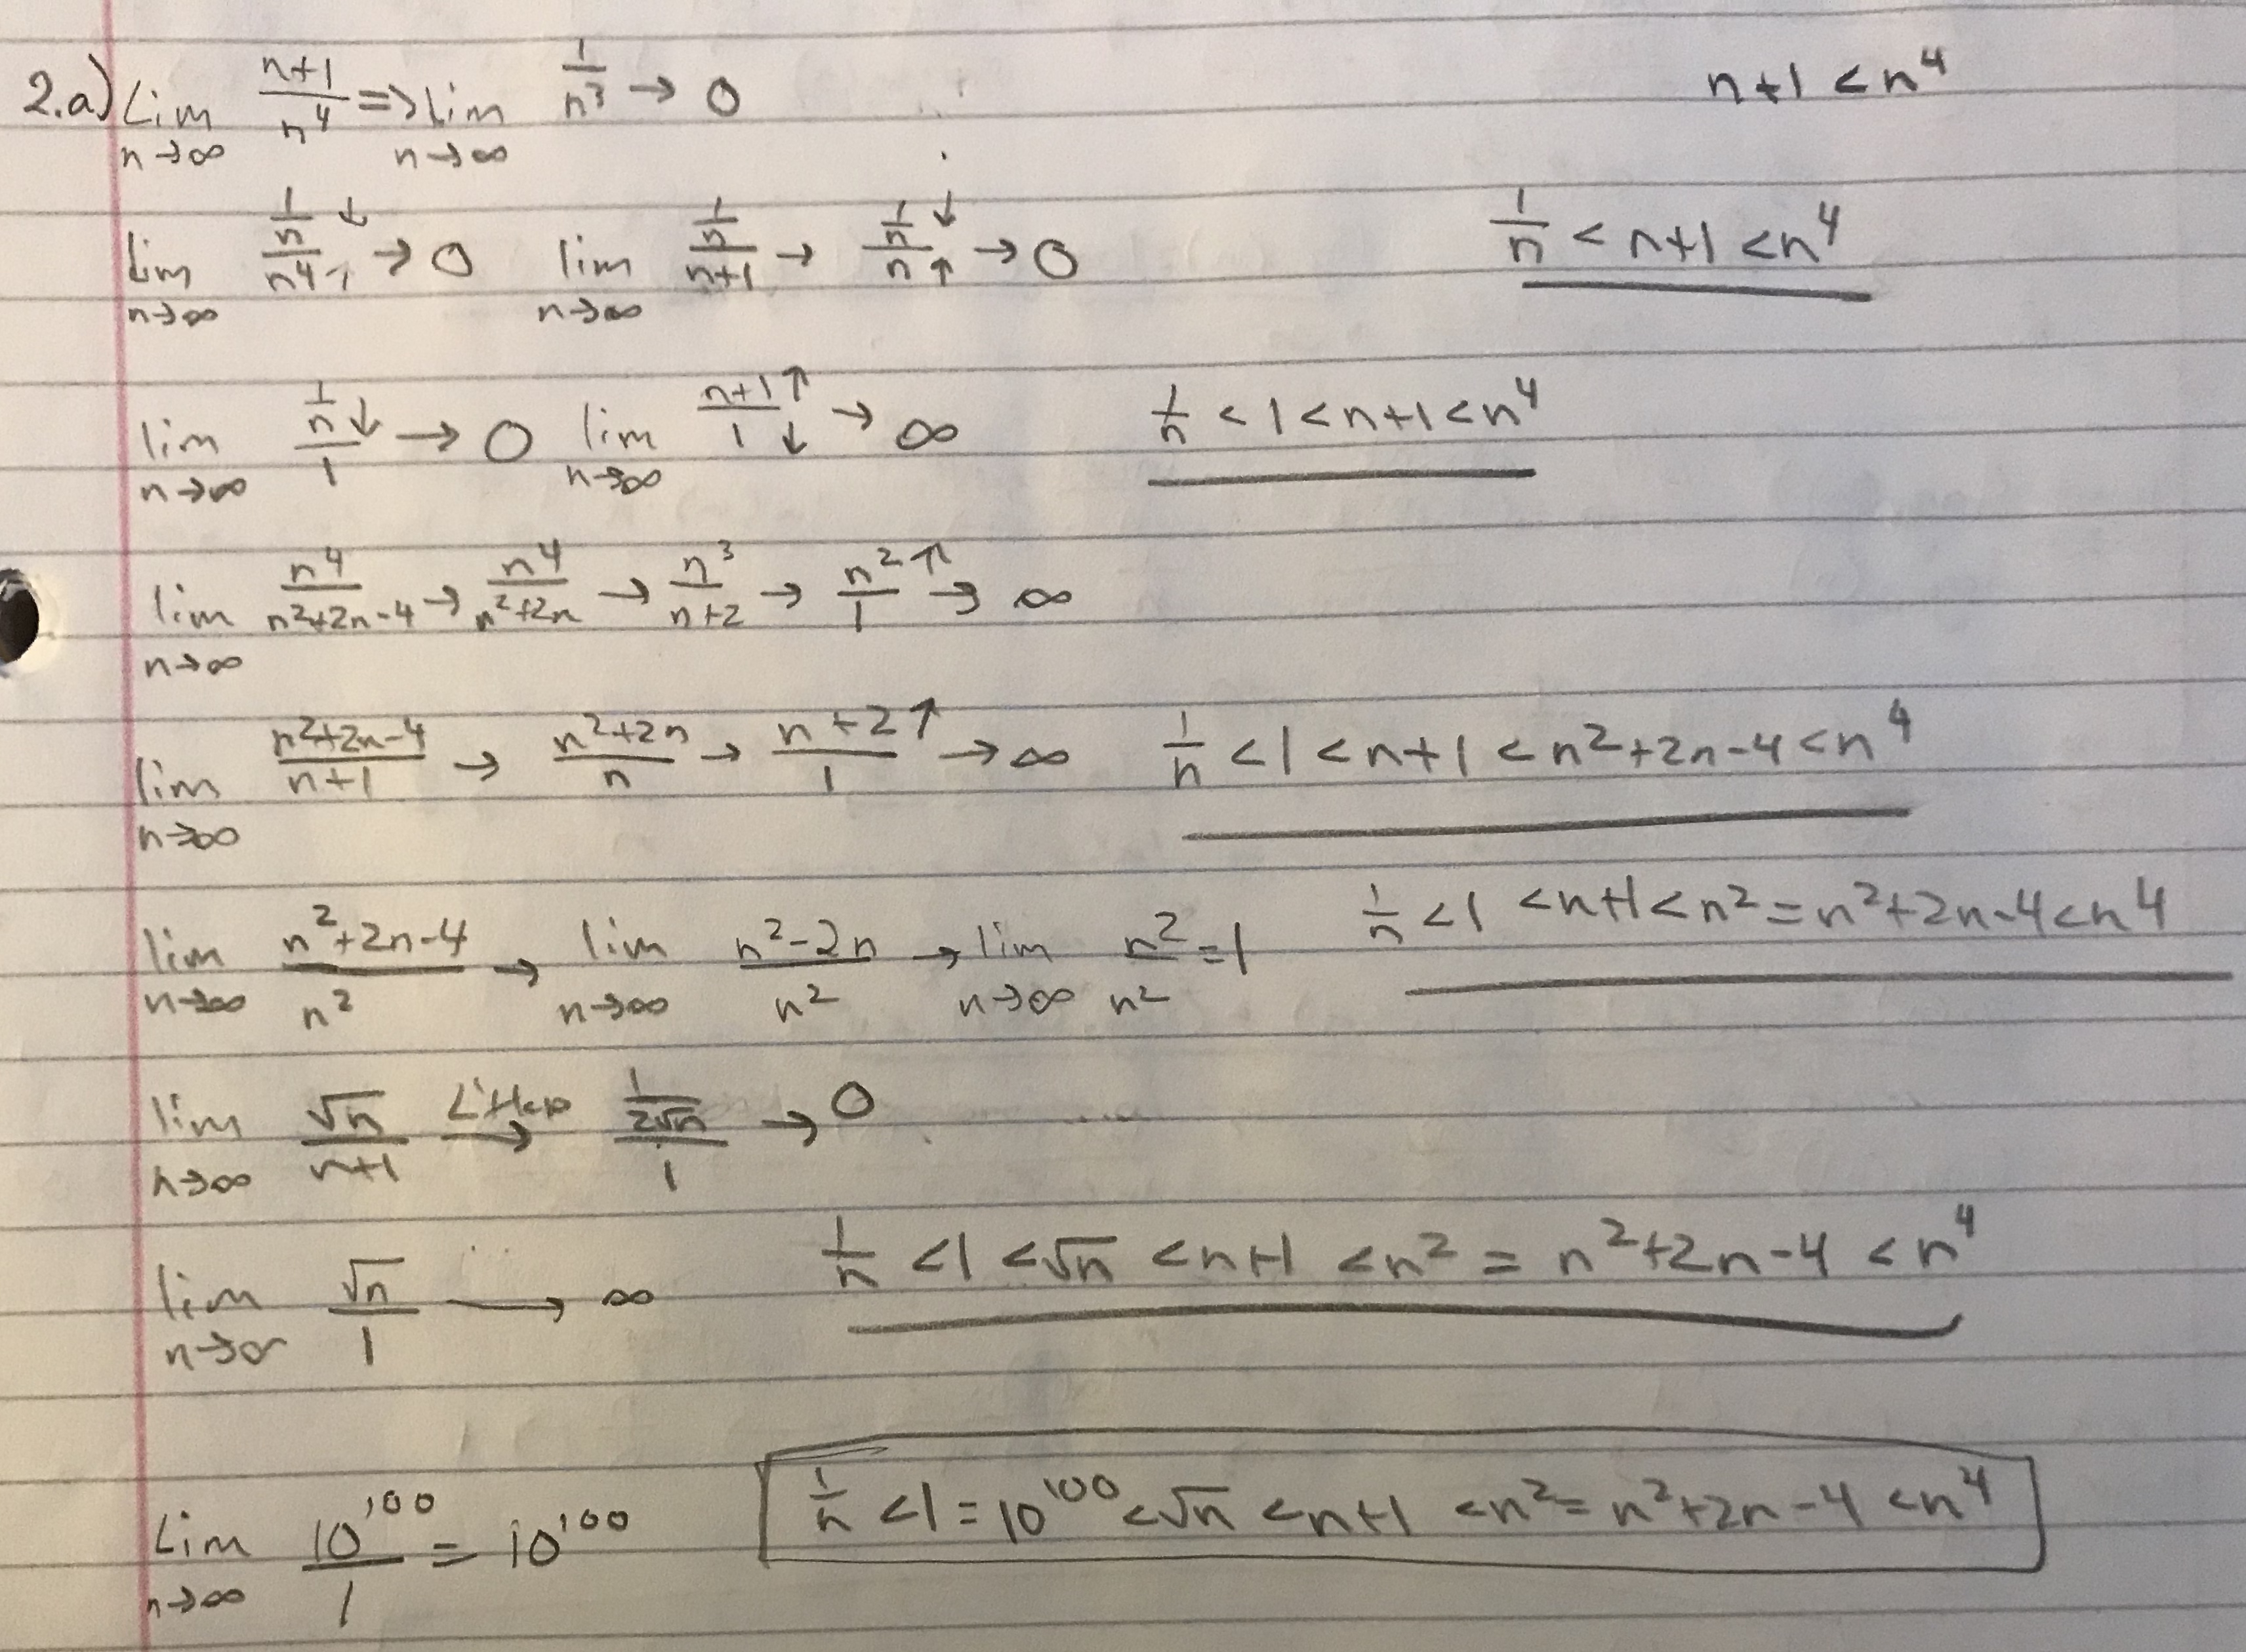 2.a) Lim n→∞ (n+1)/n⁴ => lim n→∞ 1/n³ → 0 n+1 < n⁴
lim n→∞ (1/n ↓)/n⁴ → 0 lim n→∞ (1/n)/(n+1) → (1/n ↓)/(n ↑) → 0 1/n < n+1 < n⁴
lim n→∞ (1/n ↓)/1 → 0 lim n→∞ (n+1 ↑)/(1 ↓) → ∞ 1/n < 1 < n+1 < n⁴
lim n→∞ n⁴/(n²+2n-4) → n⁴/(n²+2n) → n³/(n+2) → (n² ↑)/1 → ∞
lim n→∞ (n²+2n-4)/(n+1) → (n²+2n)/n → (n+2 ↑)/1 → ∞ 1/n < 1 < n+1 < n²+2n-4 < n⁴
lim n→∞ (n²+2n-4)/n² → lim n→∞ (n²-2n)/n² → lim n→∞ n²/n² = 1 1/n < 1 < n+1 < n² = n²+2n-4 < n⁴
lim n→∞ √n/(n+1) L'Hop → (1/(2√n))/1 → 0
lim n→∞ √n/1 → ∞ 1/n < 1 < √n < n+1 < n² = n²+2n-4 < n⁴
Lim n→∞ 10¹⁰⁰/1 = 10¹⁰⁰ 1/n < 1 = 10¹⁰⁰ < √n < n+1 < n² = n²+2n-4 < n⁴